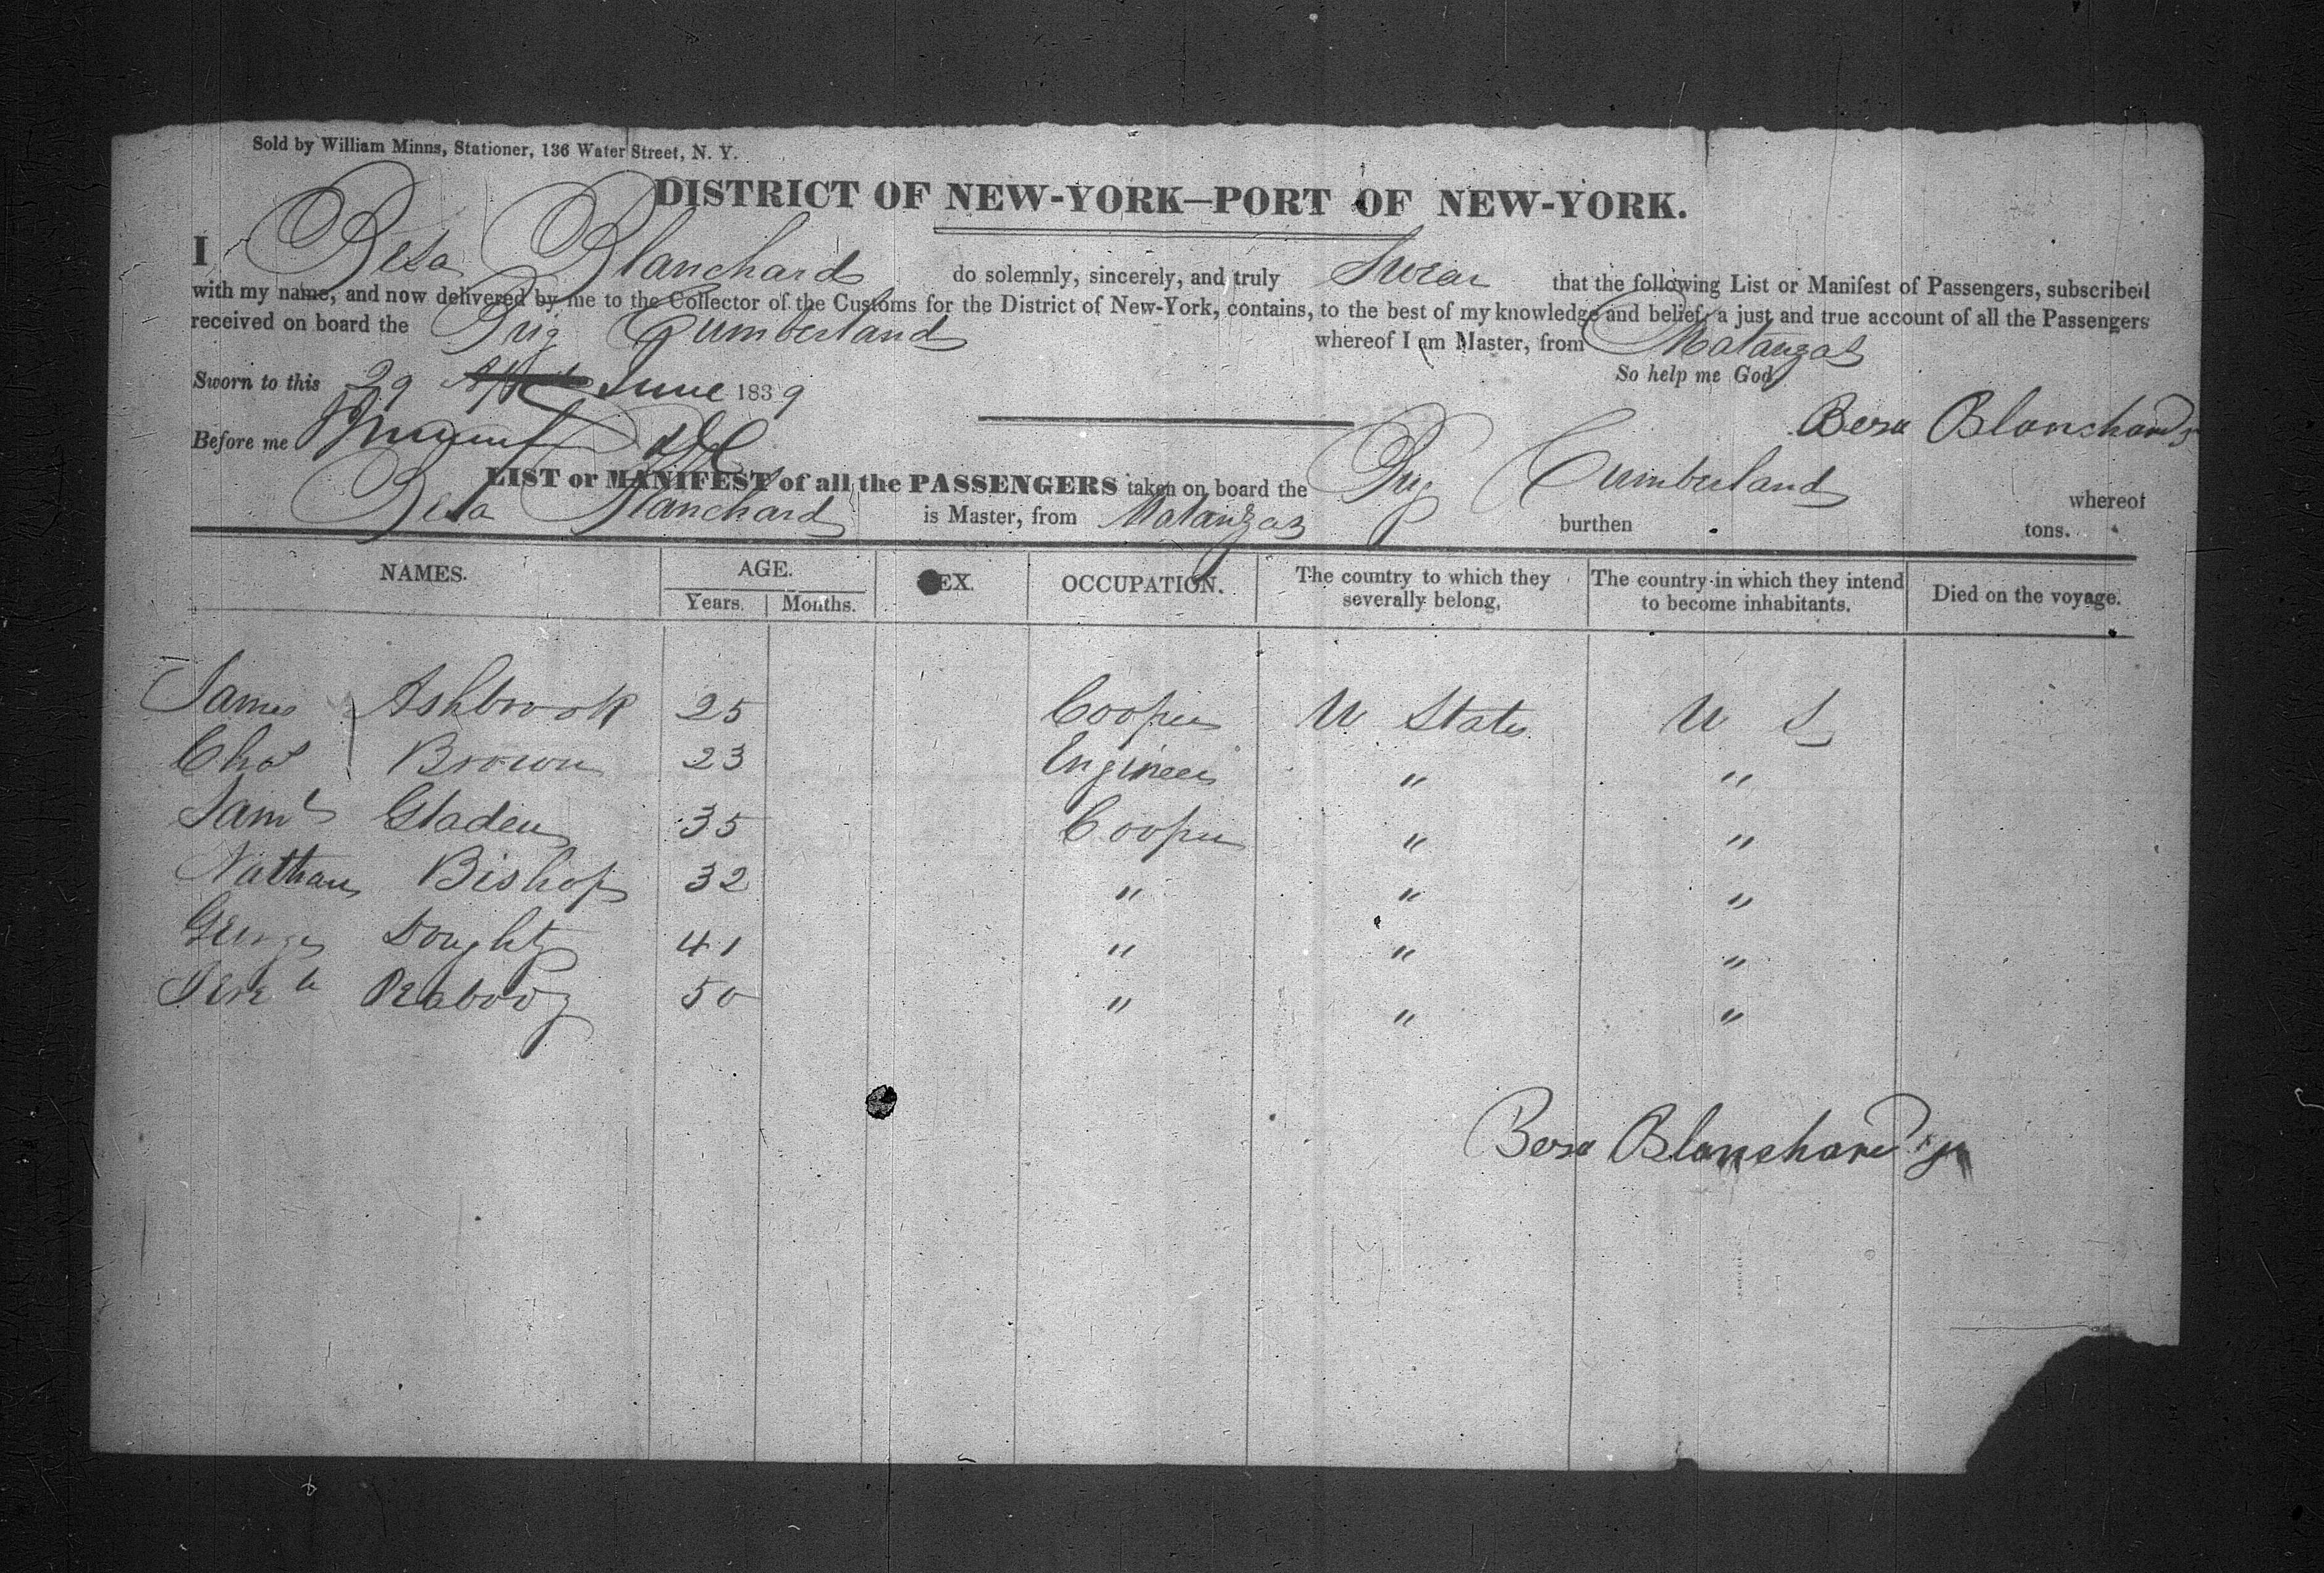 Sold by William Minns, Stationer, 136 Water Street, N. Y.
DISTRICT OF NEW-YORK—PORT OF NEW-YORK.
I Besa Blanchard do solemnly, sincerely, and truly Swear that the following List or Manifest of Passengers, subscribed
with my name, and now delivered by me to the Collector of the Customs for the District of New-York, contains, to the best of my knowledge and belief, a just and true account of all the Passengers
received on board the Brig Cumberland whereof I am Master, from Matanzas
So help me God
Sworn to this 29 June 1839
Besa Blanchard Jr
Before me
LIST or MANIFEST of all the PASSENGERS taken on board the Brig Cumberland whereof
Besa Blanchard is Master, from Matanzas burthen tons.
NAMES. AGE. SEX. OCCUPATION. The country to which they severally belong. The country in which they intend to become inhabitants. Died on the voyage.
Years. Months.
James Ashbrook 25 Cooper U States U S
Chas Brown 23 Engineer " "
Saml Gladen 35 Cooper " "
Nathan Bishop 32 " " "
George Doughty 41 " " "
Jereh Peabody 50 " " "
Besa Blanchard Jr